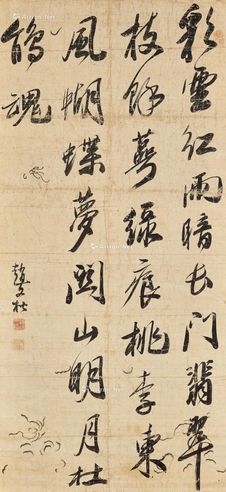 彩雲紅雨暗長門翡翠
枝餘萼綠痕桃李東
風蝴蝶夢關山明月杜
鵑魂
趙文楷